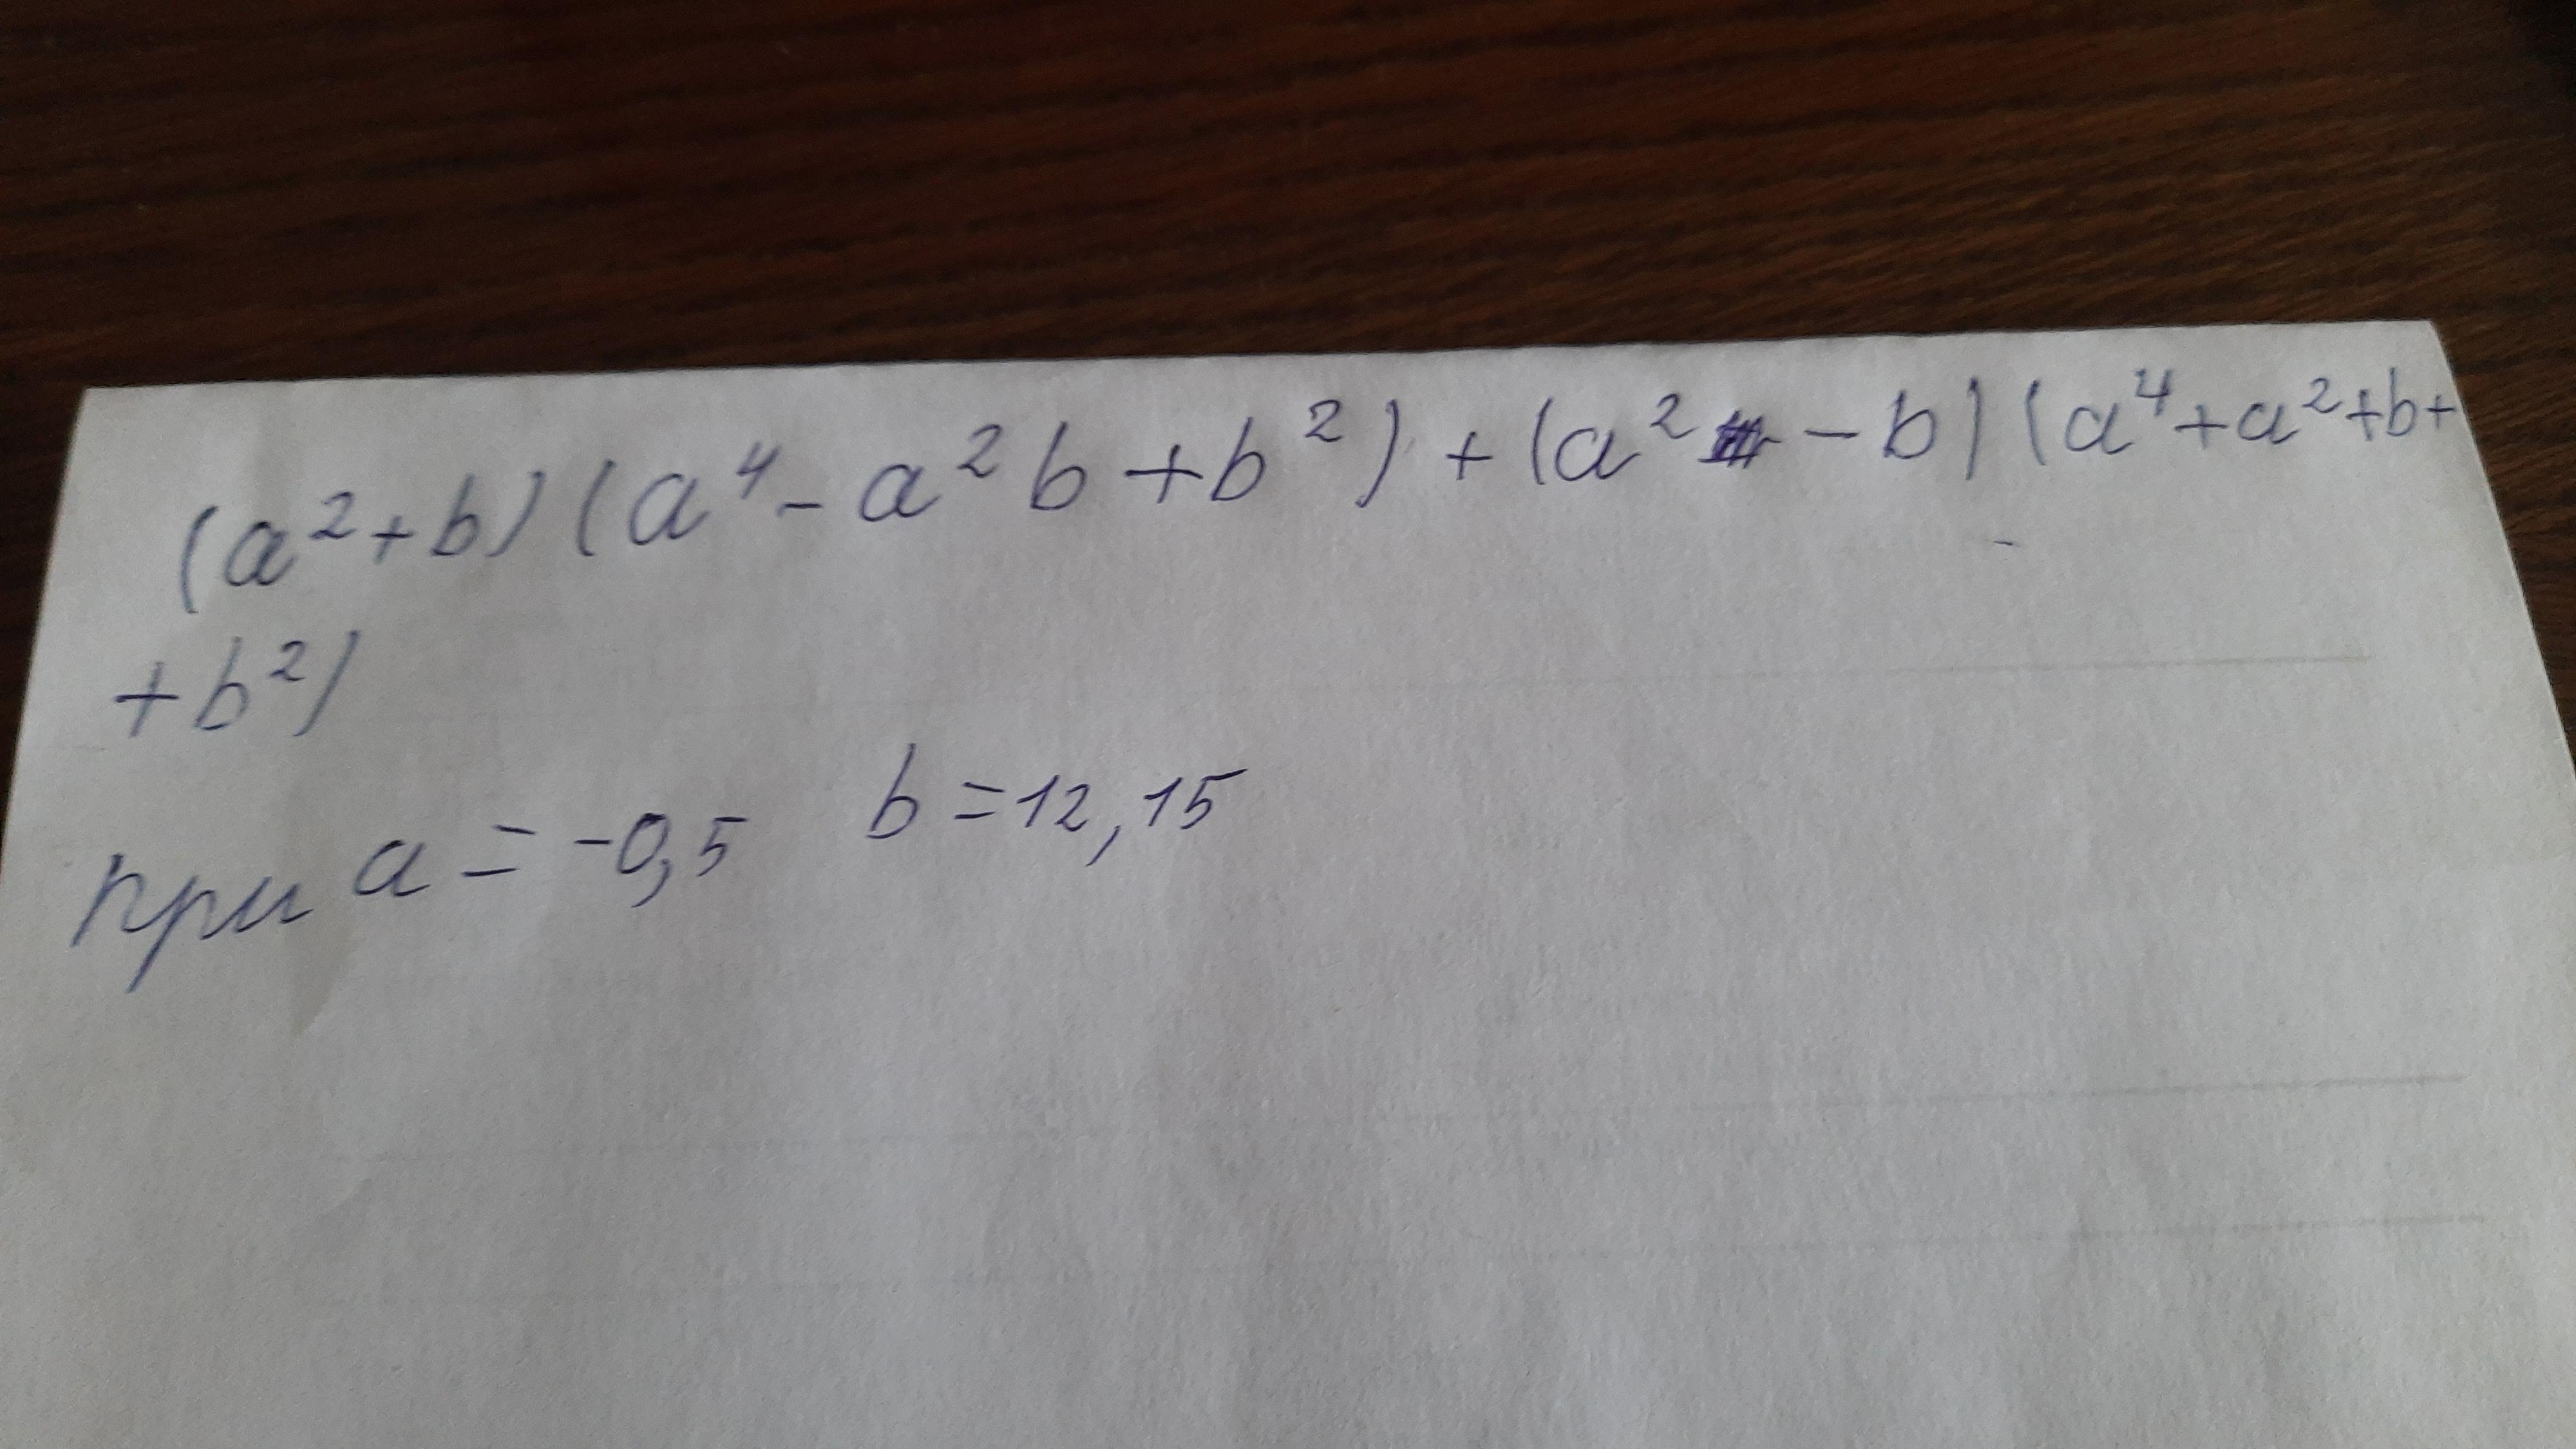 (a²+b)(a⁴-a²b+b²)+(a²-b)(a⁴+a²+b+
+b²)
при a=-0,5 b=12,15